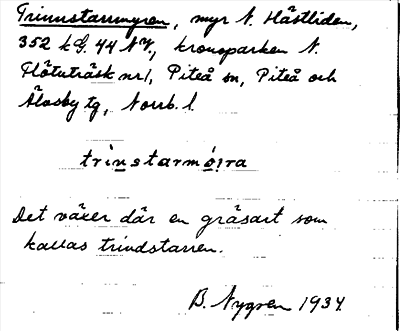 Trinnstarrmyren, myr N. Hästliden,
352 kG. 44 NV, kronoparken N.
Flötuträsk nr 1, Piteå sn, Piteå och
Älvsby tg, Norrb. l.
trinstarmó̩ira
Det växer där en gräsart som
kallas trindstarren.
B. Nygren 1934.